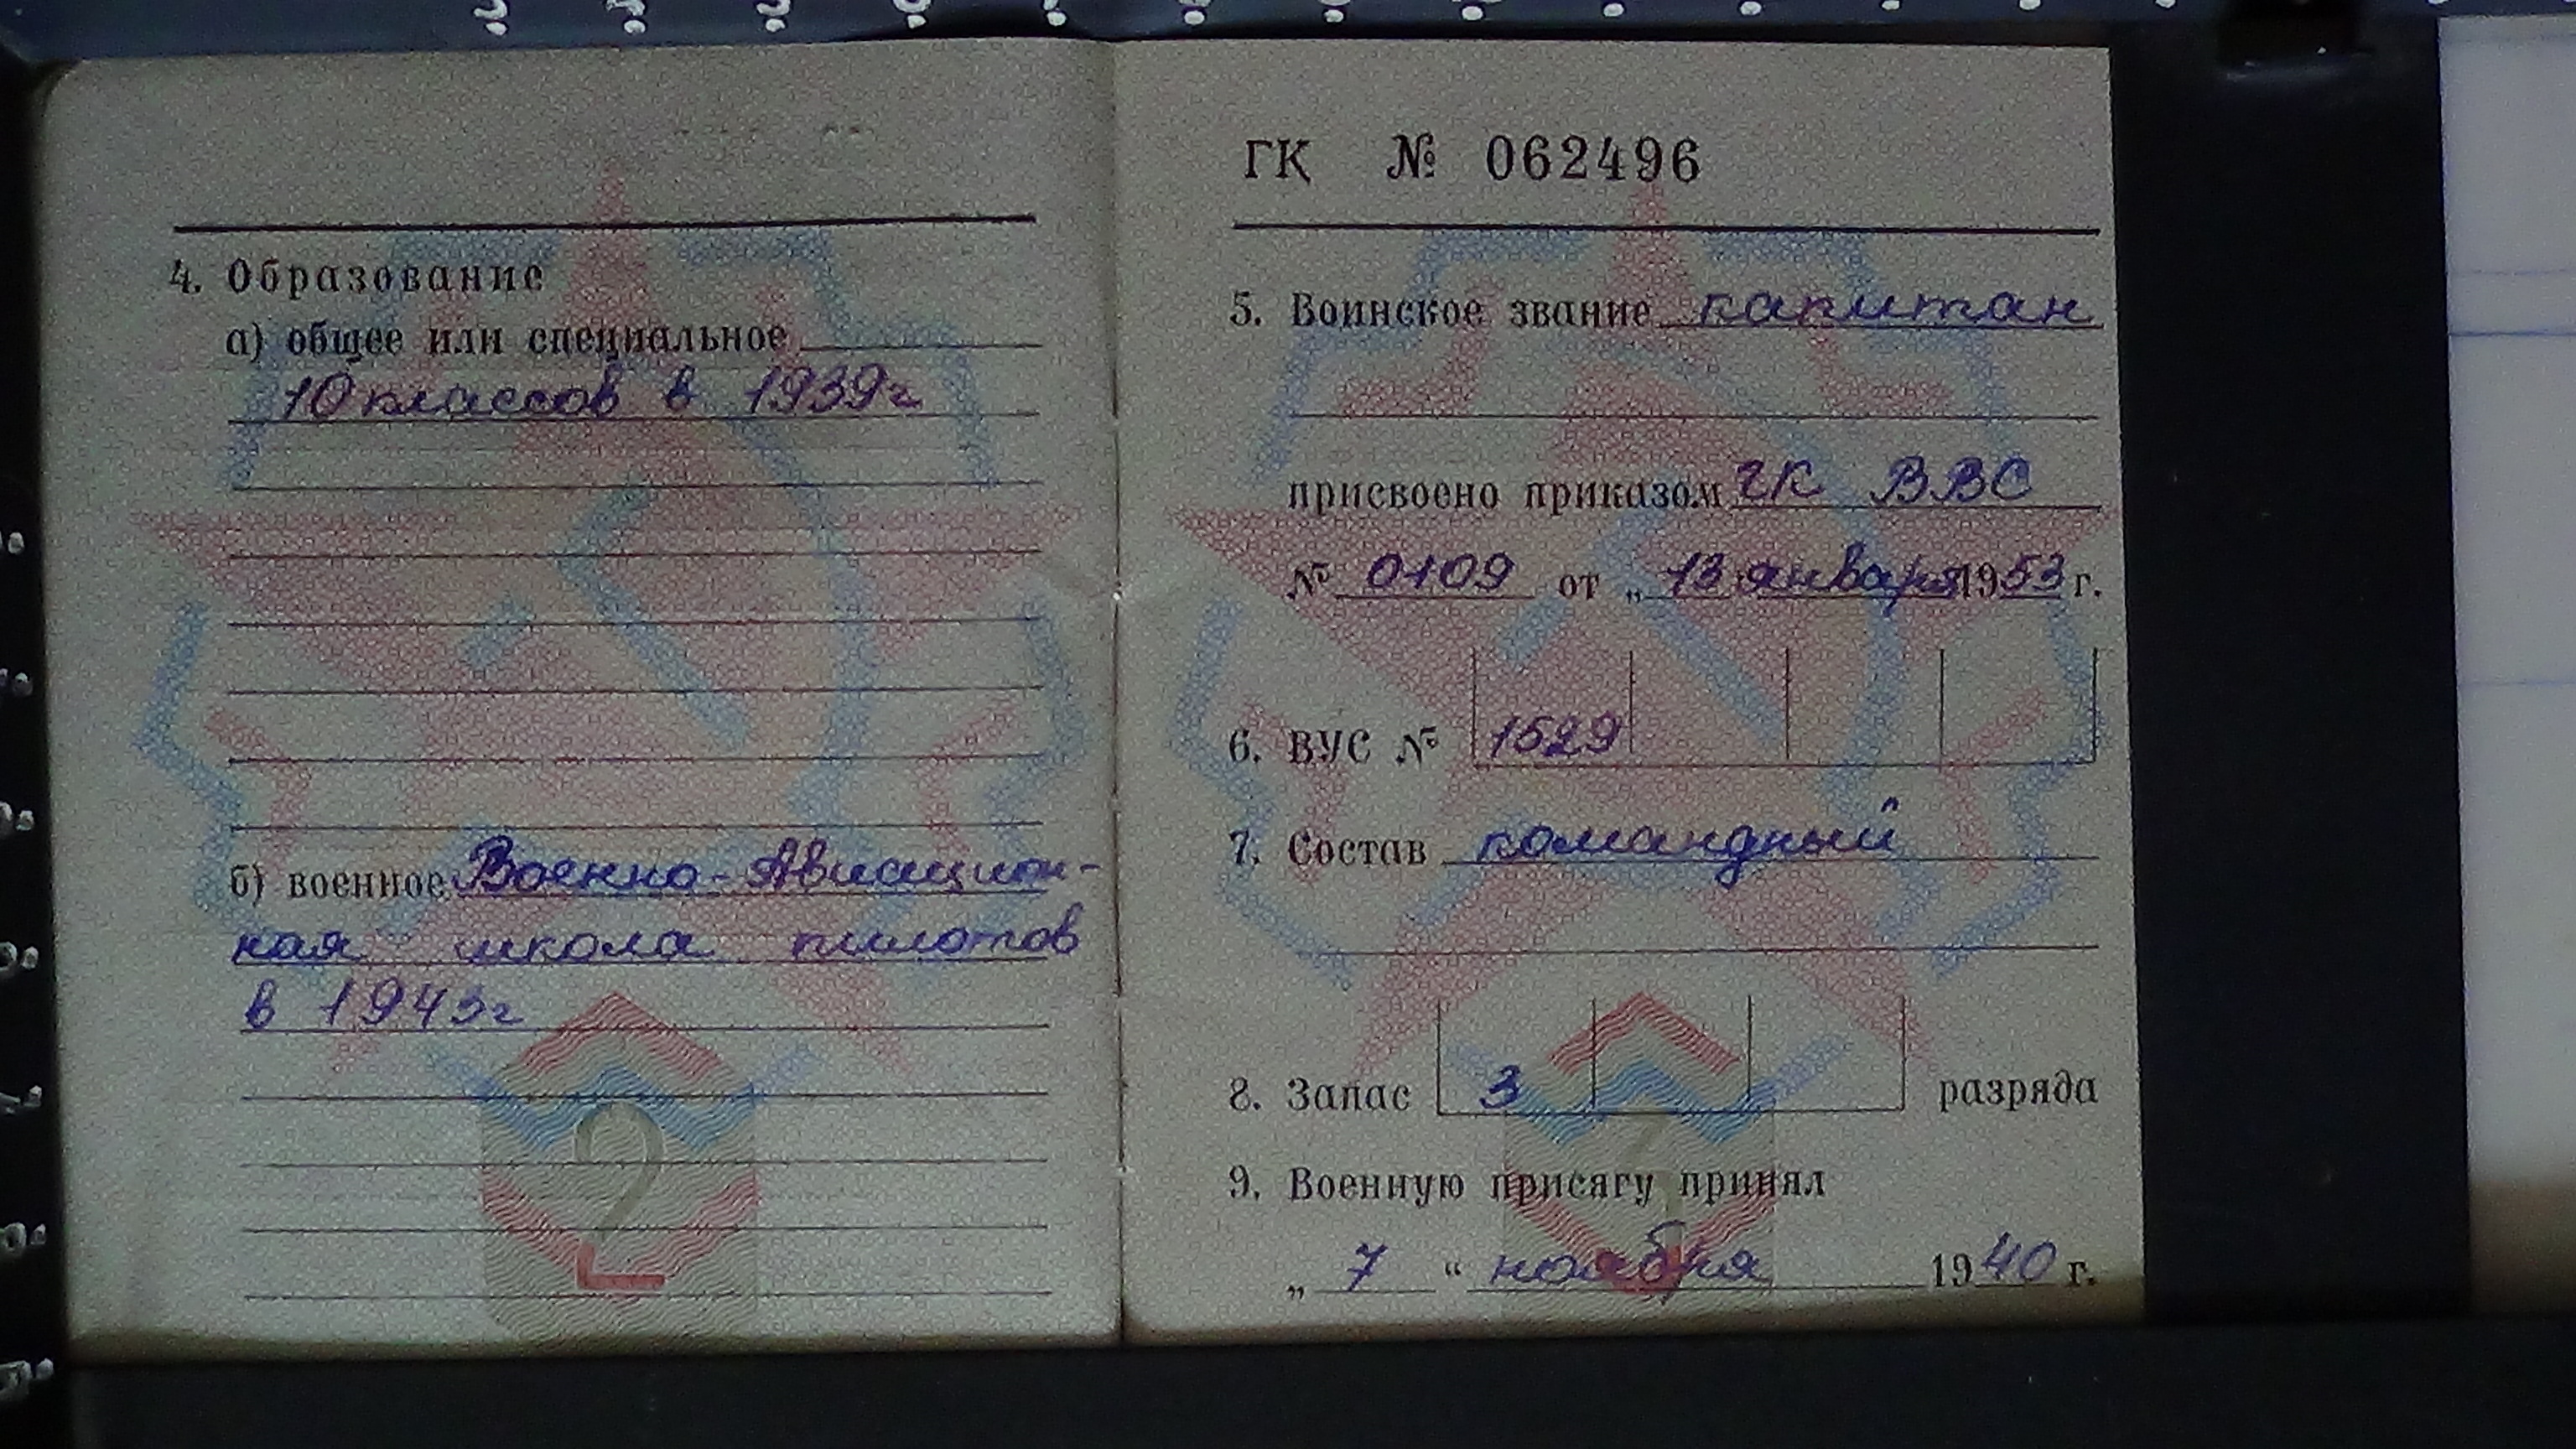 4. Образование
а) общее или специальное
10 классов в 1939г
б) военное Военно-Авиацион-
ная школа пилотов
в 1943г
2
ГК № 062496
5. Воинское звание капитан
присвоено приказом ГК ВВС
№ 0109 от „ 13 января 1953 г.
6. ВУС № 1529
7. Состав командный
8. Запас 3 разряда
9. Военную присягу принял
„ 7 “ ноября 1940 г.